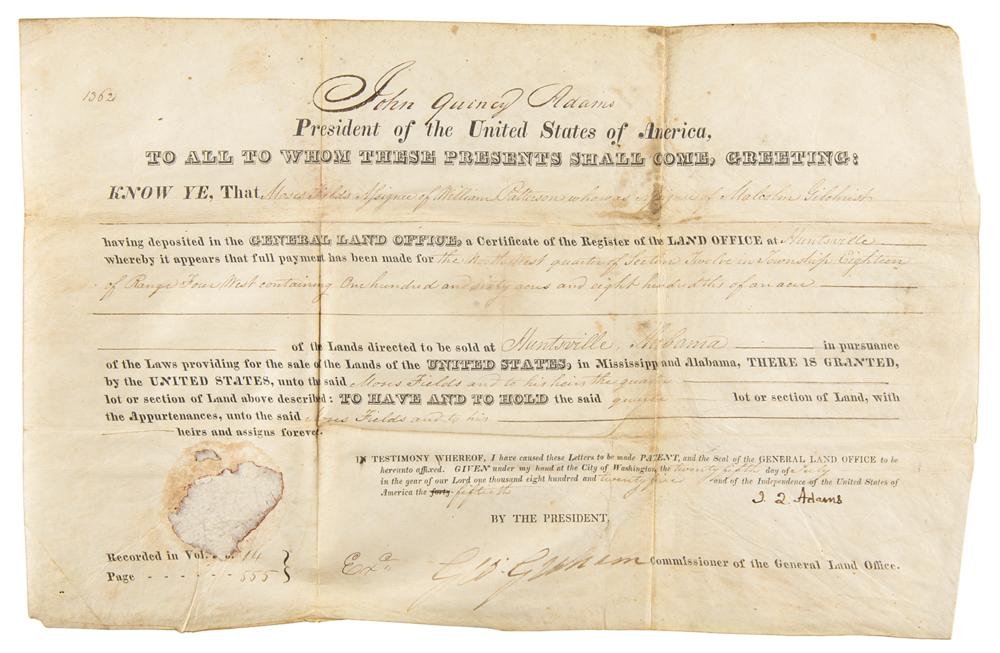 1362
John Quincy Adams
President of the United States of America,
TO ALL TO WHOM THESE PRESENTS SHALL COME, GREETING:
KNOW YE, That Moses Fields Assignee of William Patterson who was Assignee of Malcolm Gilchrist
having deposited in the GENERAL LAND OFFICE, a Certificate of the Register of the LAND OFFICE at Huntsville
whereby it appears that full payment has been made for the North West quarter of Section Twelve in Township Eighteen
of Range Four West containing One hundred and sixty acres and eight hundredths of an acre
of the Lands directed to be sold at Huntsville, Alabama in pursuance
of the Laws providing for the sale of the Lands of the UNITED STATES, in Mississippi and Alabama, THERE IS GRANTED,
by the UNITED STATES, unto the said Moses Fields and to his heirs the quarter
lot or section of Land above described: TO HAVE AND TO HOLD the said quarter lot or section of Land, with
the Appurtenances, unto the said Moses Fields and to his
heirs and assigns forever.
IN TESTIMONY WHEREOF, I have caused these Letters to be made PATENT, and the Seal of the GENERAL LAND OFFICE to be
hereunto affixed. GIVEN under my hand at the City of Washington, the twenty fifth day of July
in the year of our Lord one thousand eight hundred and twenty five and of the Independence of the United States of
America the forty fiftieth
J. Q. Adams
BY THE PRESIDENT,
Recorded in Vol. 14
Page - - - - - - - 555
Exd.
Geo: Graham Commissioner of the General Land Office.